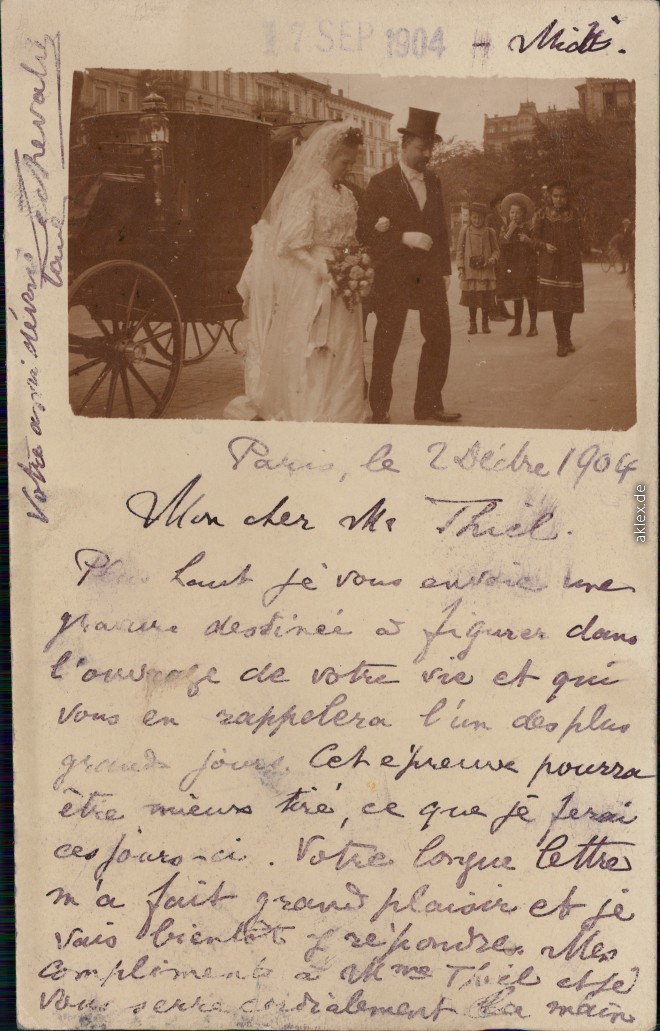 17 SEP 1904 - Midi.
Paris, le 2 Décbre 1904
Mon cher Mr Thiel.
Plus haut je vous envoie une
gravure destinée à figurer dans
l'ouvrage de votre vie et qui
vous en rappelera l'un des plus
grands jours. Cet épreuve pourra
être mieux tiré, ce que je ferai
ces jours-ci. Votre longue lettre
m'a fait grand plaisir et je
vais bientôt y répondre. Mes
compliments à Mme Thiel et je
vous serre cordialement la main
Votre ami dévoué
aklex.de